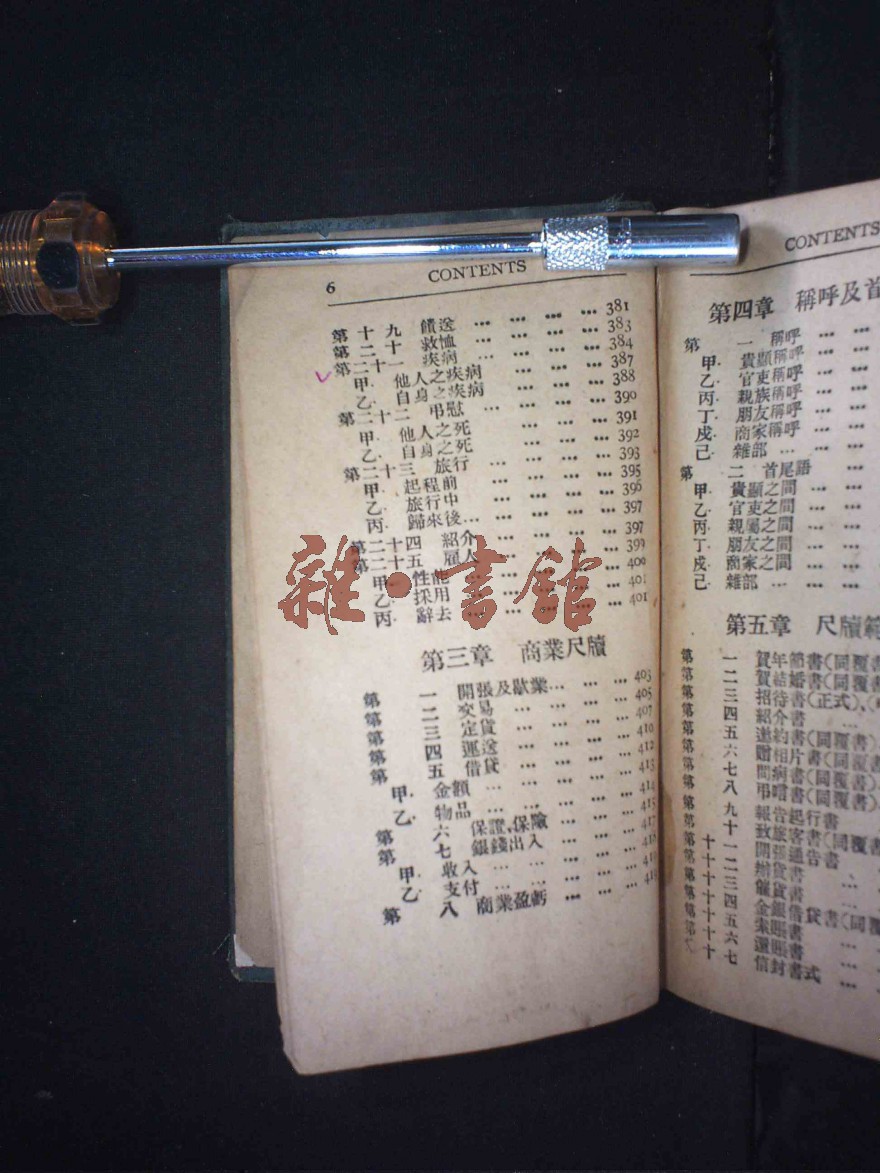 6 CONTENTS
第十九 饋送 ... ... ... ... 381
第二十 救恤 ... ... ... ... 383
第二十一 疾病 ... ... ... ... 384
甲. 他人之疾病 ... ... ... 387
乙. 自身之疾病 ... ... ... 388
第二十二 弔慰 ... ... ... ... 390
甲. 他人之死 ... ... ... 391
乙. 自身之死 ... ... ... 392
第二十三 旅行 ... ... ... ... 393
甲. 起程前 ... ... ... ... 395
乙. 旅行中 ... ... ... ... 396
丙. 歸來後 ... ... ... ... 397
第二十四 紹介 ... ... ... ... 397
第二十五 雇人 ... ... ... ... 399
甲. 性能 ... ... ... ... 400
乙. 採用 ... ... ... ... 401
丙. 辭去 ... ... ... ... 401
第三章 商業尺牘
第一 開張及歇業 ... ... ... 403
第二 交易 ... ... ... ... 405
第三 定貨 ... ... ... ... 407
第四 運送 ... ... ... ... 410
第五 借貸 ... ... ... ... 412
甲. 金額 ... ... ... ... 413
乙. 物品 ... ... ... ... 414
第六 保證、保險 ... ... ... 415
第七 銀錢出入 ... ... ... 417
甲. 收入 ... ... ... ...
乙. 支付 ... ... ... ...
第八 商業盈虧 ... ... ...
CONTENTS
第四章 稱呼及首
第一 稱呼 ... ...
甲. 貴顯稱呼 ... ...
乙. 官吏稱呼 ... ...
丙. 親族稱呼 ... ...
丁. 朋友稱呼 ... ...
戊. 商家稱呼 ... ...
己. 雜部 ... ... ...
第二 首尾語 ...
甲. 貴顯之間 ... ...
乙. 官吏之間 ... ...
丙. 親屬之間 ... ...
丁. 朋友之間 ... ...
戊. 商家之間 ... ...
己. 雜部 ... ... ...
第五章 尺牘範
第一 賀年節書(同覆書
第二 賀結婚書(同覆書
第三 招待書(正式)、
第四 紹介書 ...
第五 邀約書(同覆書)
第六 贈相片書(同覆書
第七 問病書(同覆書)
第八 弔唁書(同覆書)
第九 報告起行書
第十 致旅客書(同覆書
第十一 開張通告書
第十二 辦貨書 ...
第十三 催貨書 ...
第十四 金銀借貸書(同覆
第十五 索賬書 ...
第十六 還賬書 ...
十七 信封書式 ...
雜·書館